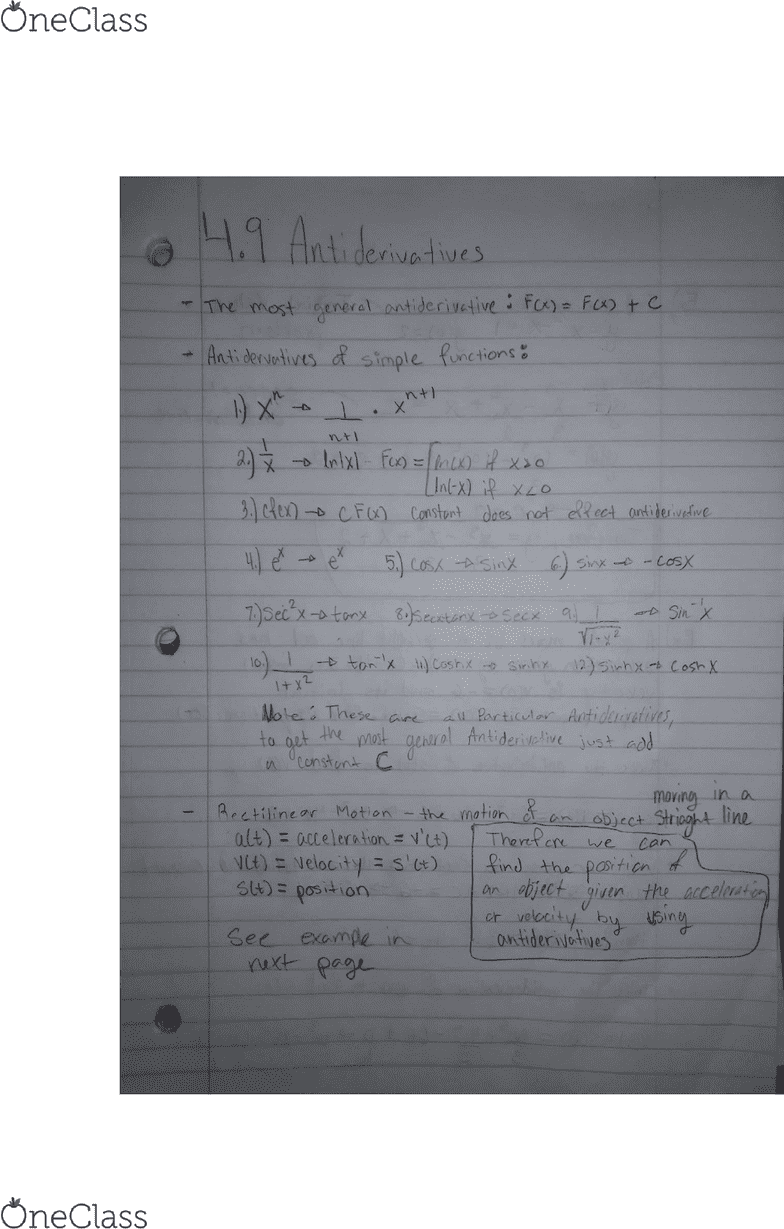 OneClass
4.9 Antiderivatives
- The most general antiderivative : F(x) = F(x) + C
- Antidervatives of simple functions:
1.) xⁿ → 1/(n+1) · xⁿ⁺¹
2.) 1/x → ln|x| - F(x) = [ln(x) if x>0
[ln(-x) if x<0
3.) cf(x) → CF(x) Constant does not effect antiderivative
4.) eˣ → eˣ 5.) cosx → sinx 6.) sinx → -cosx
7.) Sec²x → tanx 8.) Secxtanx → Secx 9.) 1/√(1-x²) → Sin⁻¹x
10.) 1/(1+x²) → tan⁻¹x 11.) Coshx → sinhx 12.) sinhx → coshx
Note: These are all Particular Antiderivatives,
to get the most general Antiderivative just add
a constant C
- Rectilinear Motion - the motion of an object moving in a Striaght line
a(t) = acceleration = v'(t)
v(t) = velocity = s'(t)
s(t) = position
Therefore we can
find the position of
an object given the acceleration
or velocity by using
antiderivatives
See example in
next page
OneClass